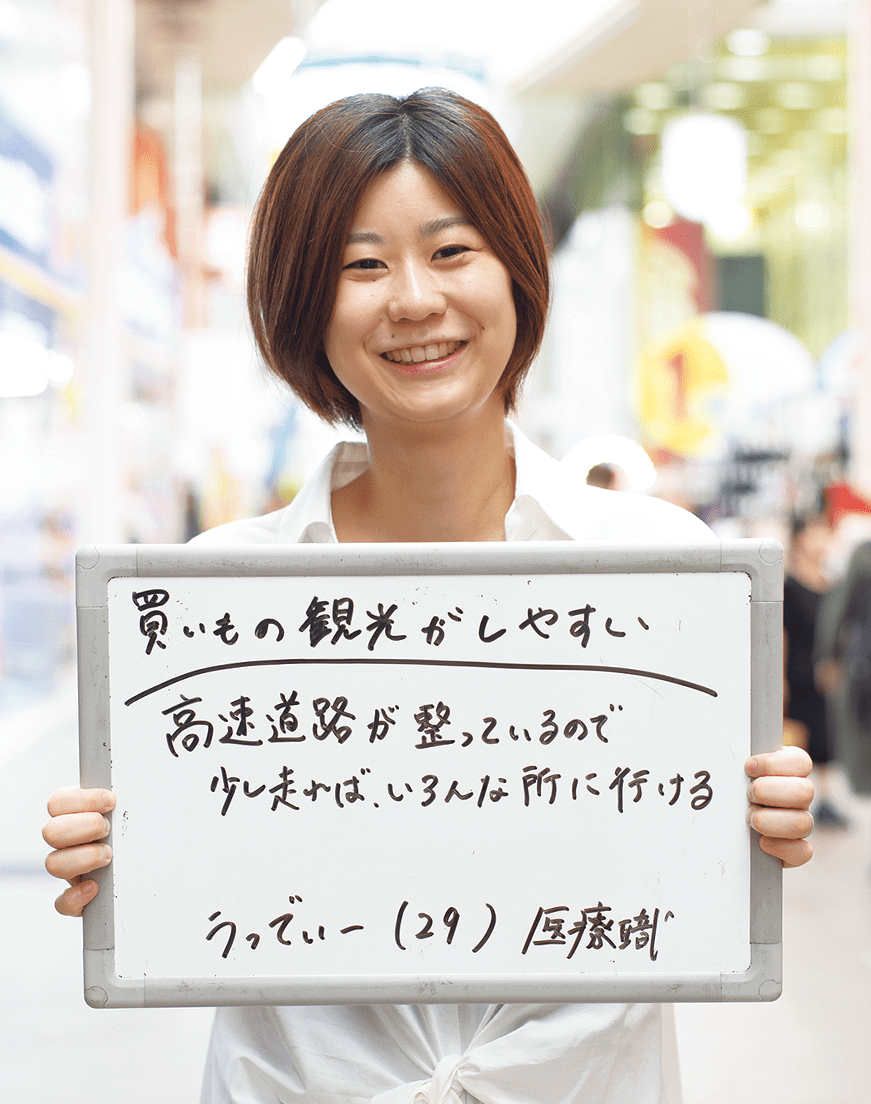 買いもの観光がしやすい
高速道路が整っているので
少し走れば、いろんな所に行ける
うってぃー(29) 医療職
1